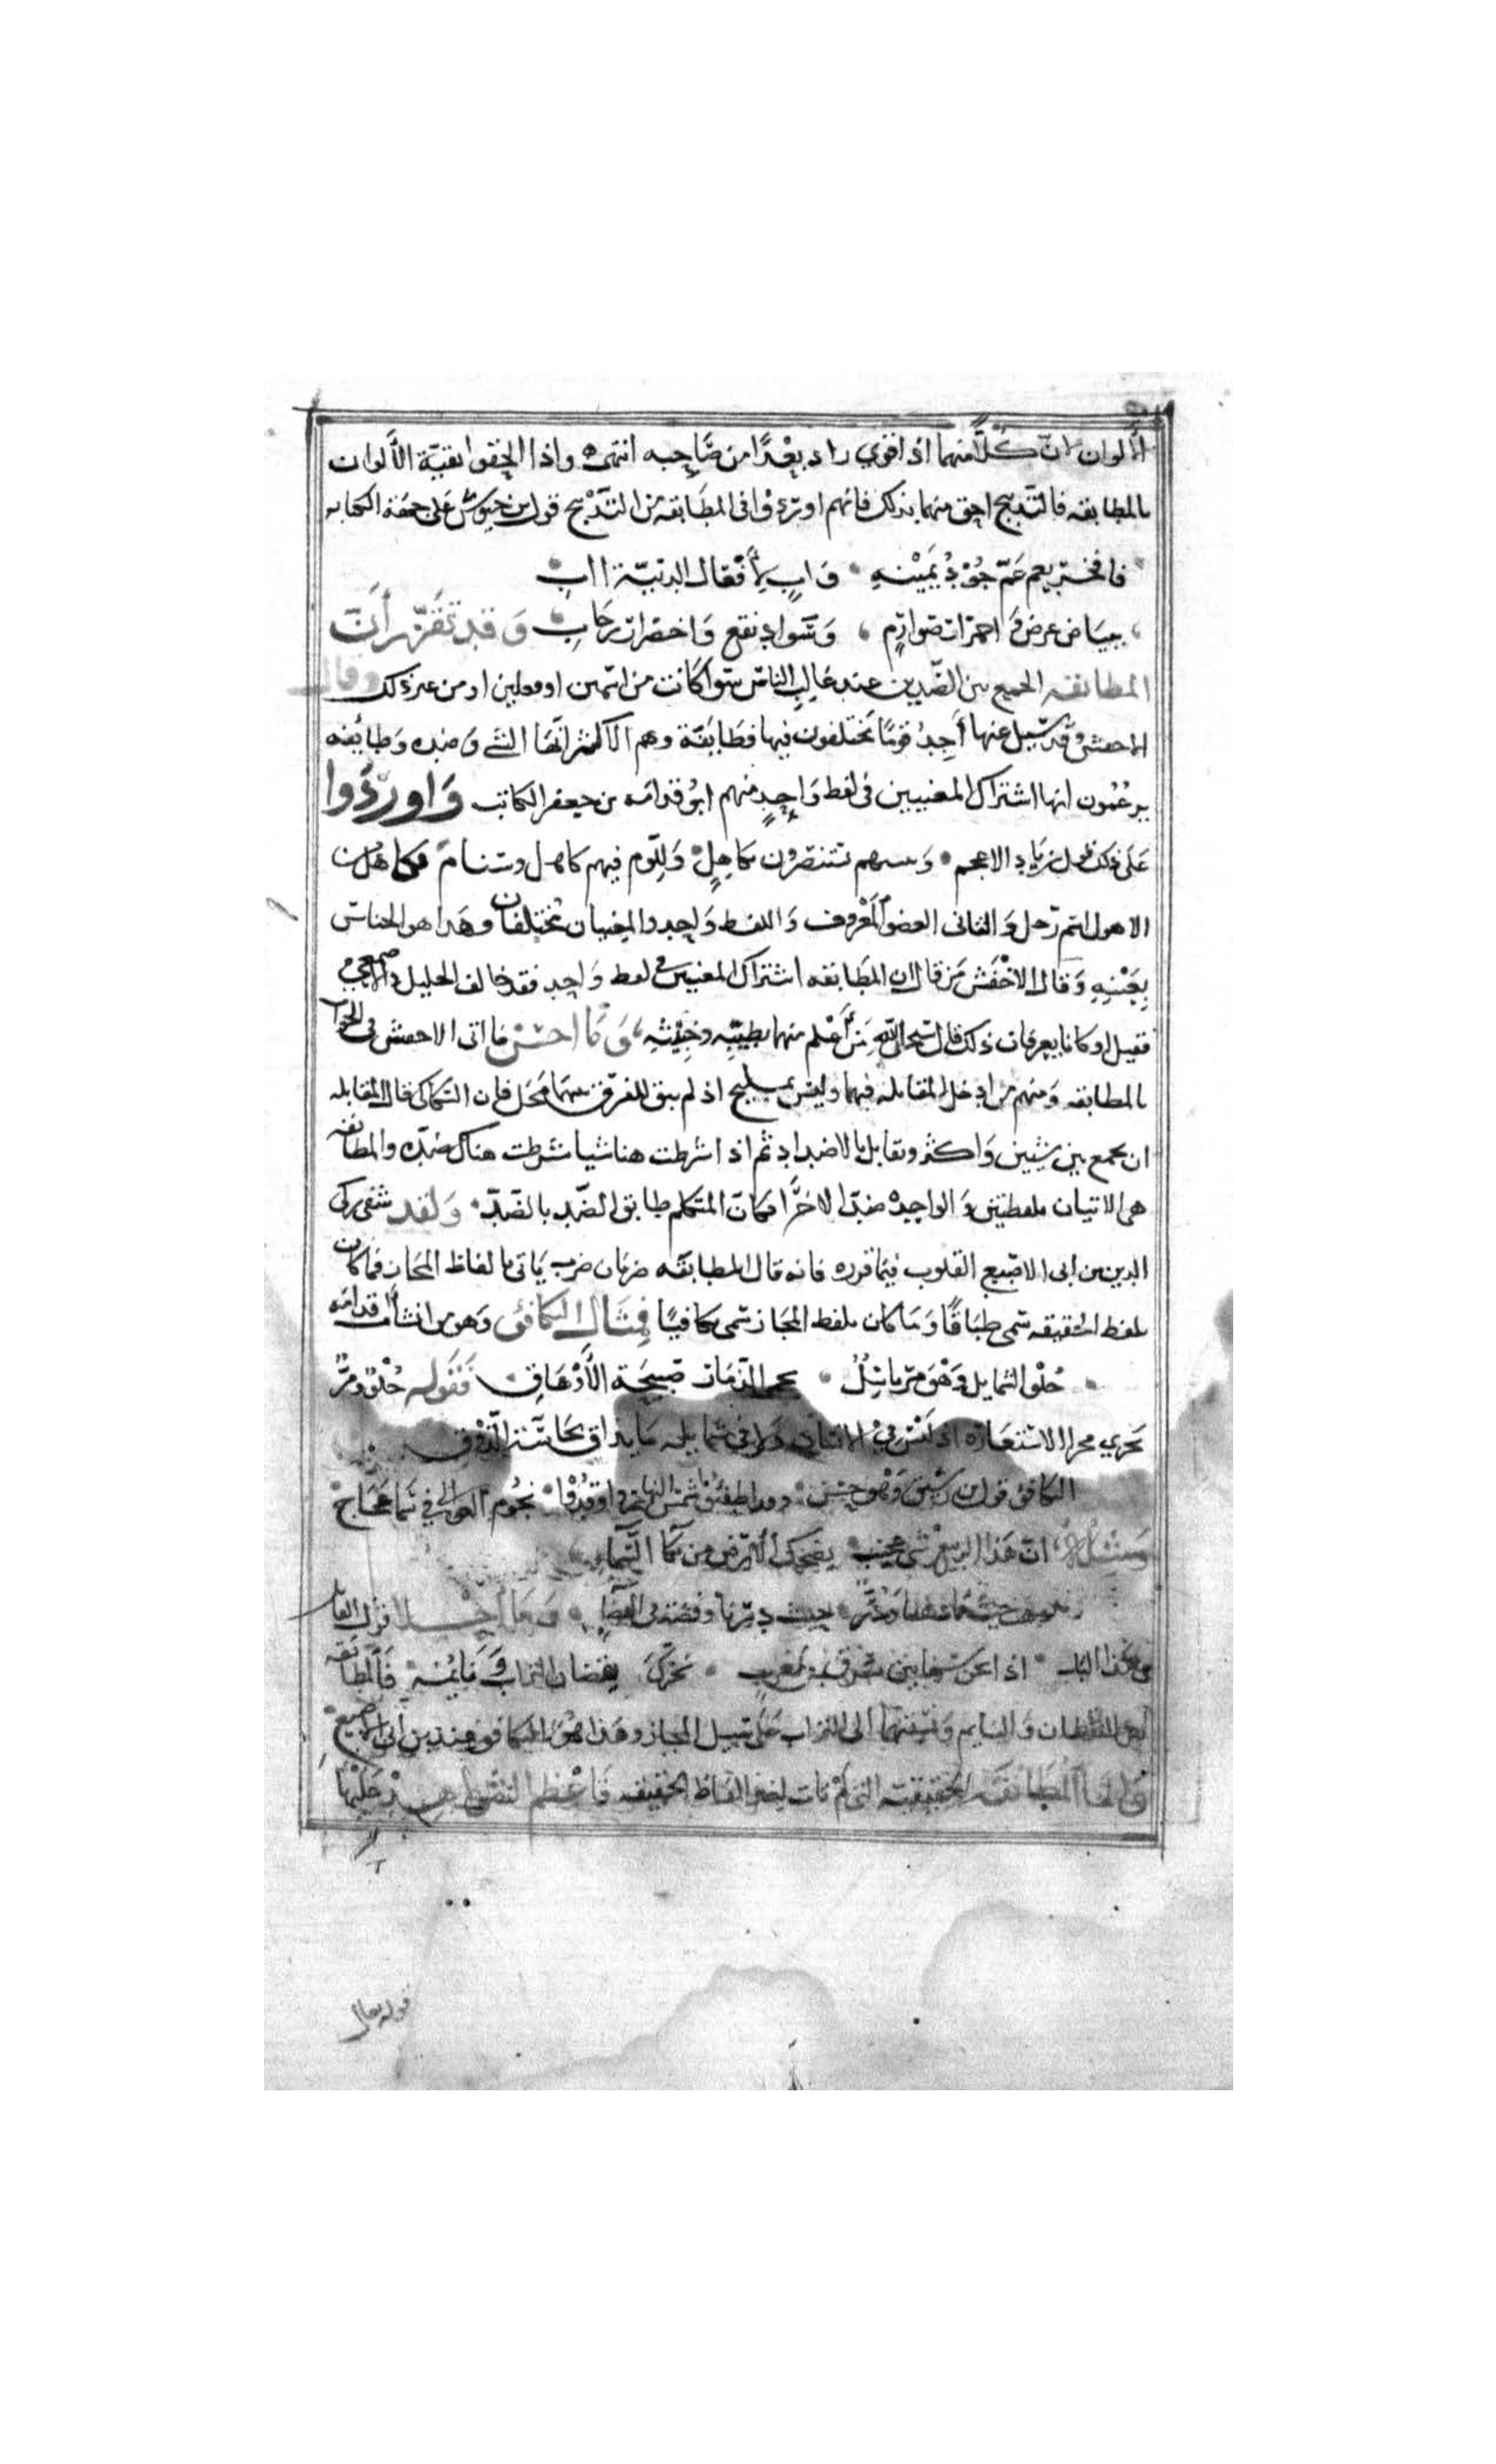 الألوان لان كلا منهما اذا قوي زاد بعدًا من صاحبه انتهى واذا الحقوا بقية الألوان
بالمطابقه فالتدبيج احق منهما بذلك فانهم اوردوا فى المطابقه من التدبيج قول ابن حيوش على جهة الكنايه
فافخر بعم عم جود يمينه وابٍ لأفعال الدنية ابِ
ببياض عرض واحمرار صوارم وسواد نقع واخضرار رحاب وقد تقرر أن
المطابقه الجمع بين الضدين عند غالب الناس سوا كانت من اسمين او فعلين او من غير ذلك وقال
الاخفش وقد سيل عنها أجد قومًا يختلفون فيها فطايفة وهم الاكثر انها الشي وضده وطايفه
يزعمون انها اشتراك المعنيين فى لفظ واحدٍ منهم ابو قدامه بن جعفر الكاتب واوردوا
على ذلك قول زياد الاعجم ونبيهم تستنصرون بكاهلٍ وللوم فيهم كاهل وسنام فكاهل
الاول اسم رجل والثانى العضو المعروف واللفظ واحد والمعنيان مختلفان وهذا هو الجناس
بعينه وقال الاخفش من قال ان المطابقه اشتراك المعنيين فى لفظ واحد فقد خالف الخليل والاصمعي
فقيل او كانا يعرفان ذلك قال سبحان الله من أعلم منهما بطيبه وخبيثه وما احسن ما اتى الاخفش فى الجواب
بالمطابقه ومنهم من ادخل المقابله فيها وليس بمليح اذ لم يبق للفرق بينهما محل فان السكاكى قال المقابله
ان تجمع بين شيئين واكثر وتقابل بالاضداد ثم اذا شرطت هنا شيا شرطت هناك ضده والمطابقه
هى الاتيان بلفظتين والواحده ضد الاخرا فكان المتكلم طابق الضد بالضد ولقد شفى زكى
الدين بن ابى الاصبع القلوب فيما قرره فانه قال المطابقه ضربان ضرب ياتى بالفاظ المجاز فما كان
بلفظ الحقيقه سمى طباقًا وما كان بلفظ المجاز سمى تكافيًا فمثال التكافئ وهو من انشاد قدامه
حلو الشمايل وهو مر باسلٌ يحمى الذمار صبيحة الأرهاق فقوله حلوٌ ومرٌ
يجري مجرا الاستعاره اذ ليس في الانسان ولا فى شمايله ما يذاق بحاسة الذوق
التكافؤ قول ابن رشيق وهو حسن وقد اطفؤا شمس النهار واوقدوا نجوم العوالى في سما عجاج
ومثله ان هذا الربيع شى عجيب يضحك الارض من بكا السماء
ذهب حيث ما ذهبنا ودرٌ حيث درنا وفضة فى الفضاء وما أحلا قول القايل
فى هذا الباب اذا نحن سرنا بين شرق ومغرب تحرك يقضان التراب ونايمه فالمطابقه
بين اليقظان والنايم ونسبتهما الى التراب على سبيل المجاز وهذا هو التكافؤ عند بن أبى الاصبع
واما المطابقه الحقيقيه التى لم تات بغير الفاظ الحقيقه
قوله تعالى